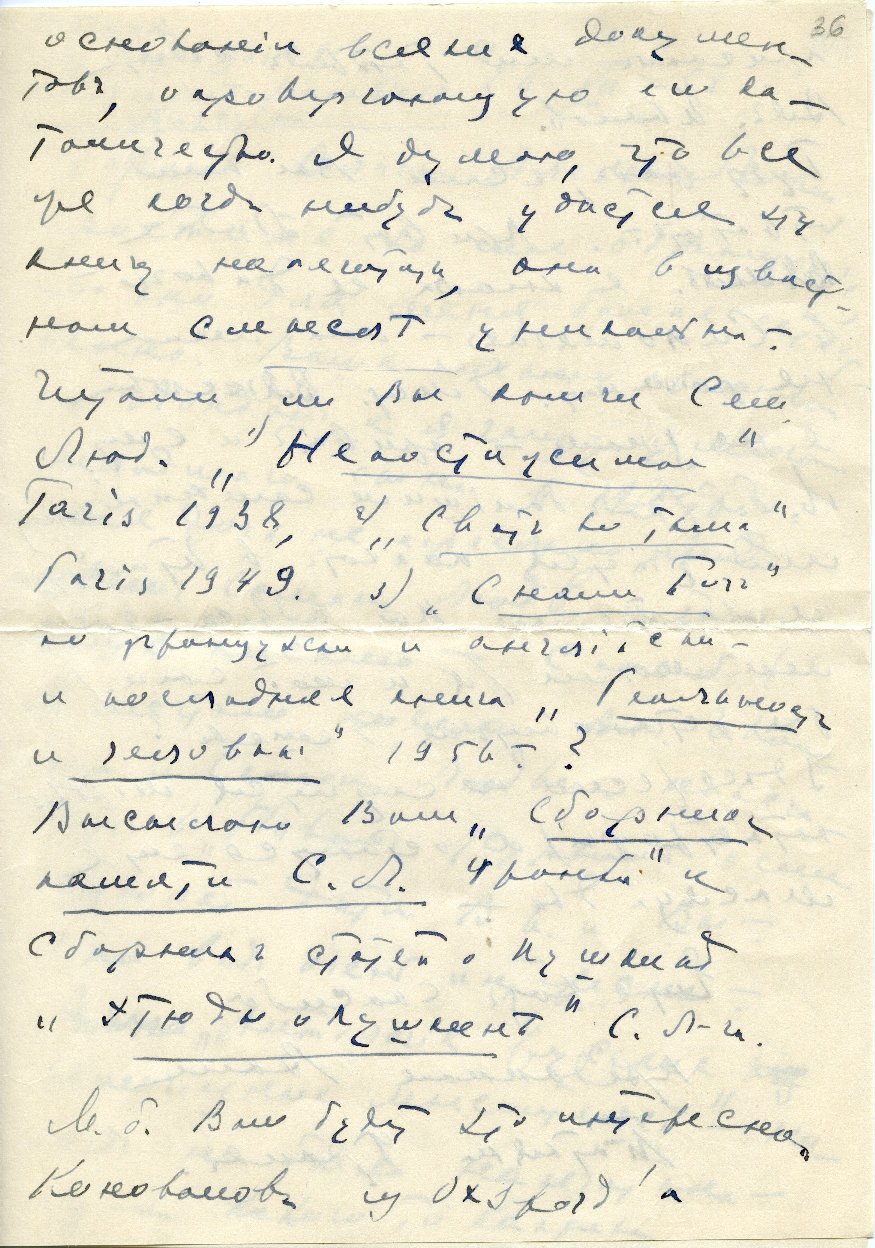 36
основанiи всякихъ докумен-
товъ, опровергающую ея ка-
толичество. Я думаю, что все
же когда нибудь удастся эту
книгу напечатать, она в извѣст-
ном смыслѣ уникальна.
Читали ли Вы книги Сем.
Люд. 1) „Непостижимое"
Paris 1938, 2) „Свѣтъ во тьмѣ"
Paris 1949. 3) „С нами Богъ"
по французски и англiйски -
и послѣдняя книга „Реальность
и человѣкъ" 1956 - ?
Высылаю Вам „Сборникъ
памяти С. Л. Франка" и
сборникъ статей о Пушкинѣ
„Этюды о Пушкинѣ" С. Л-ча.
М. б. Вам будет это интересно.
Коноваловъ из Oxford'a